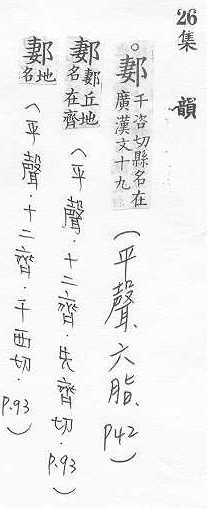 26集 韻
。郪千咨切縣名在廣漢文十九(平聲、六脂、P42)
郪郪丘地名在齊(平聲.十二齊.先齊切.P.93)
郪地名(平聲.十二齊.千西切.P.93)